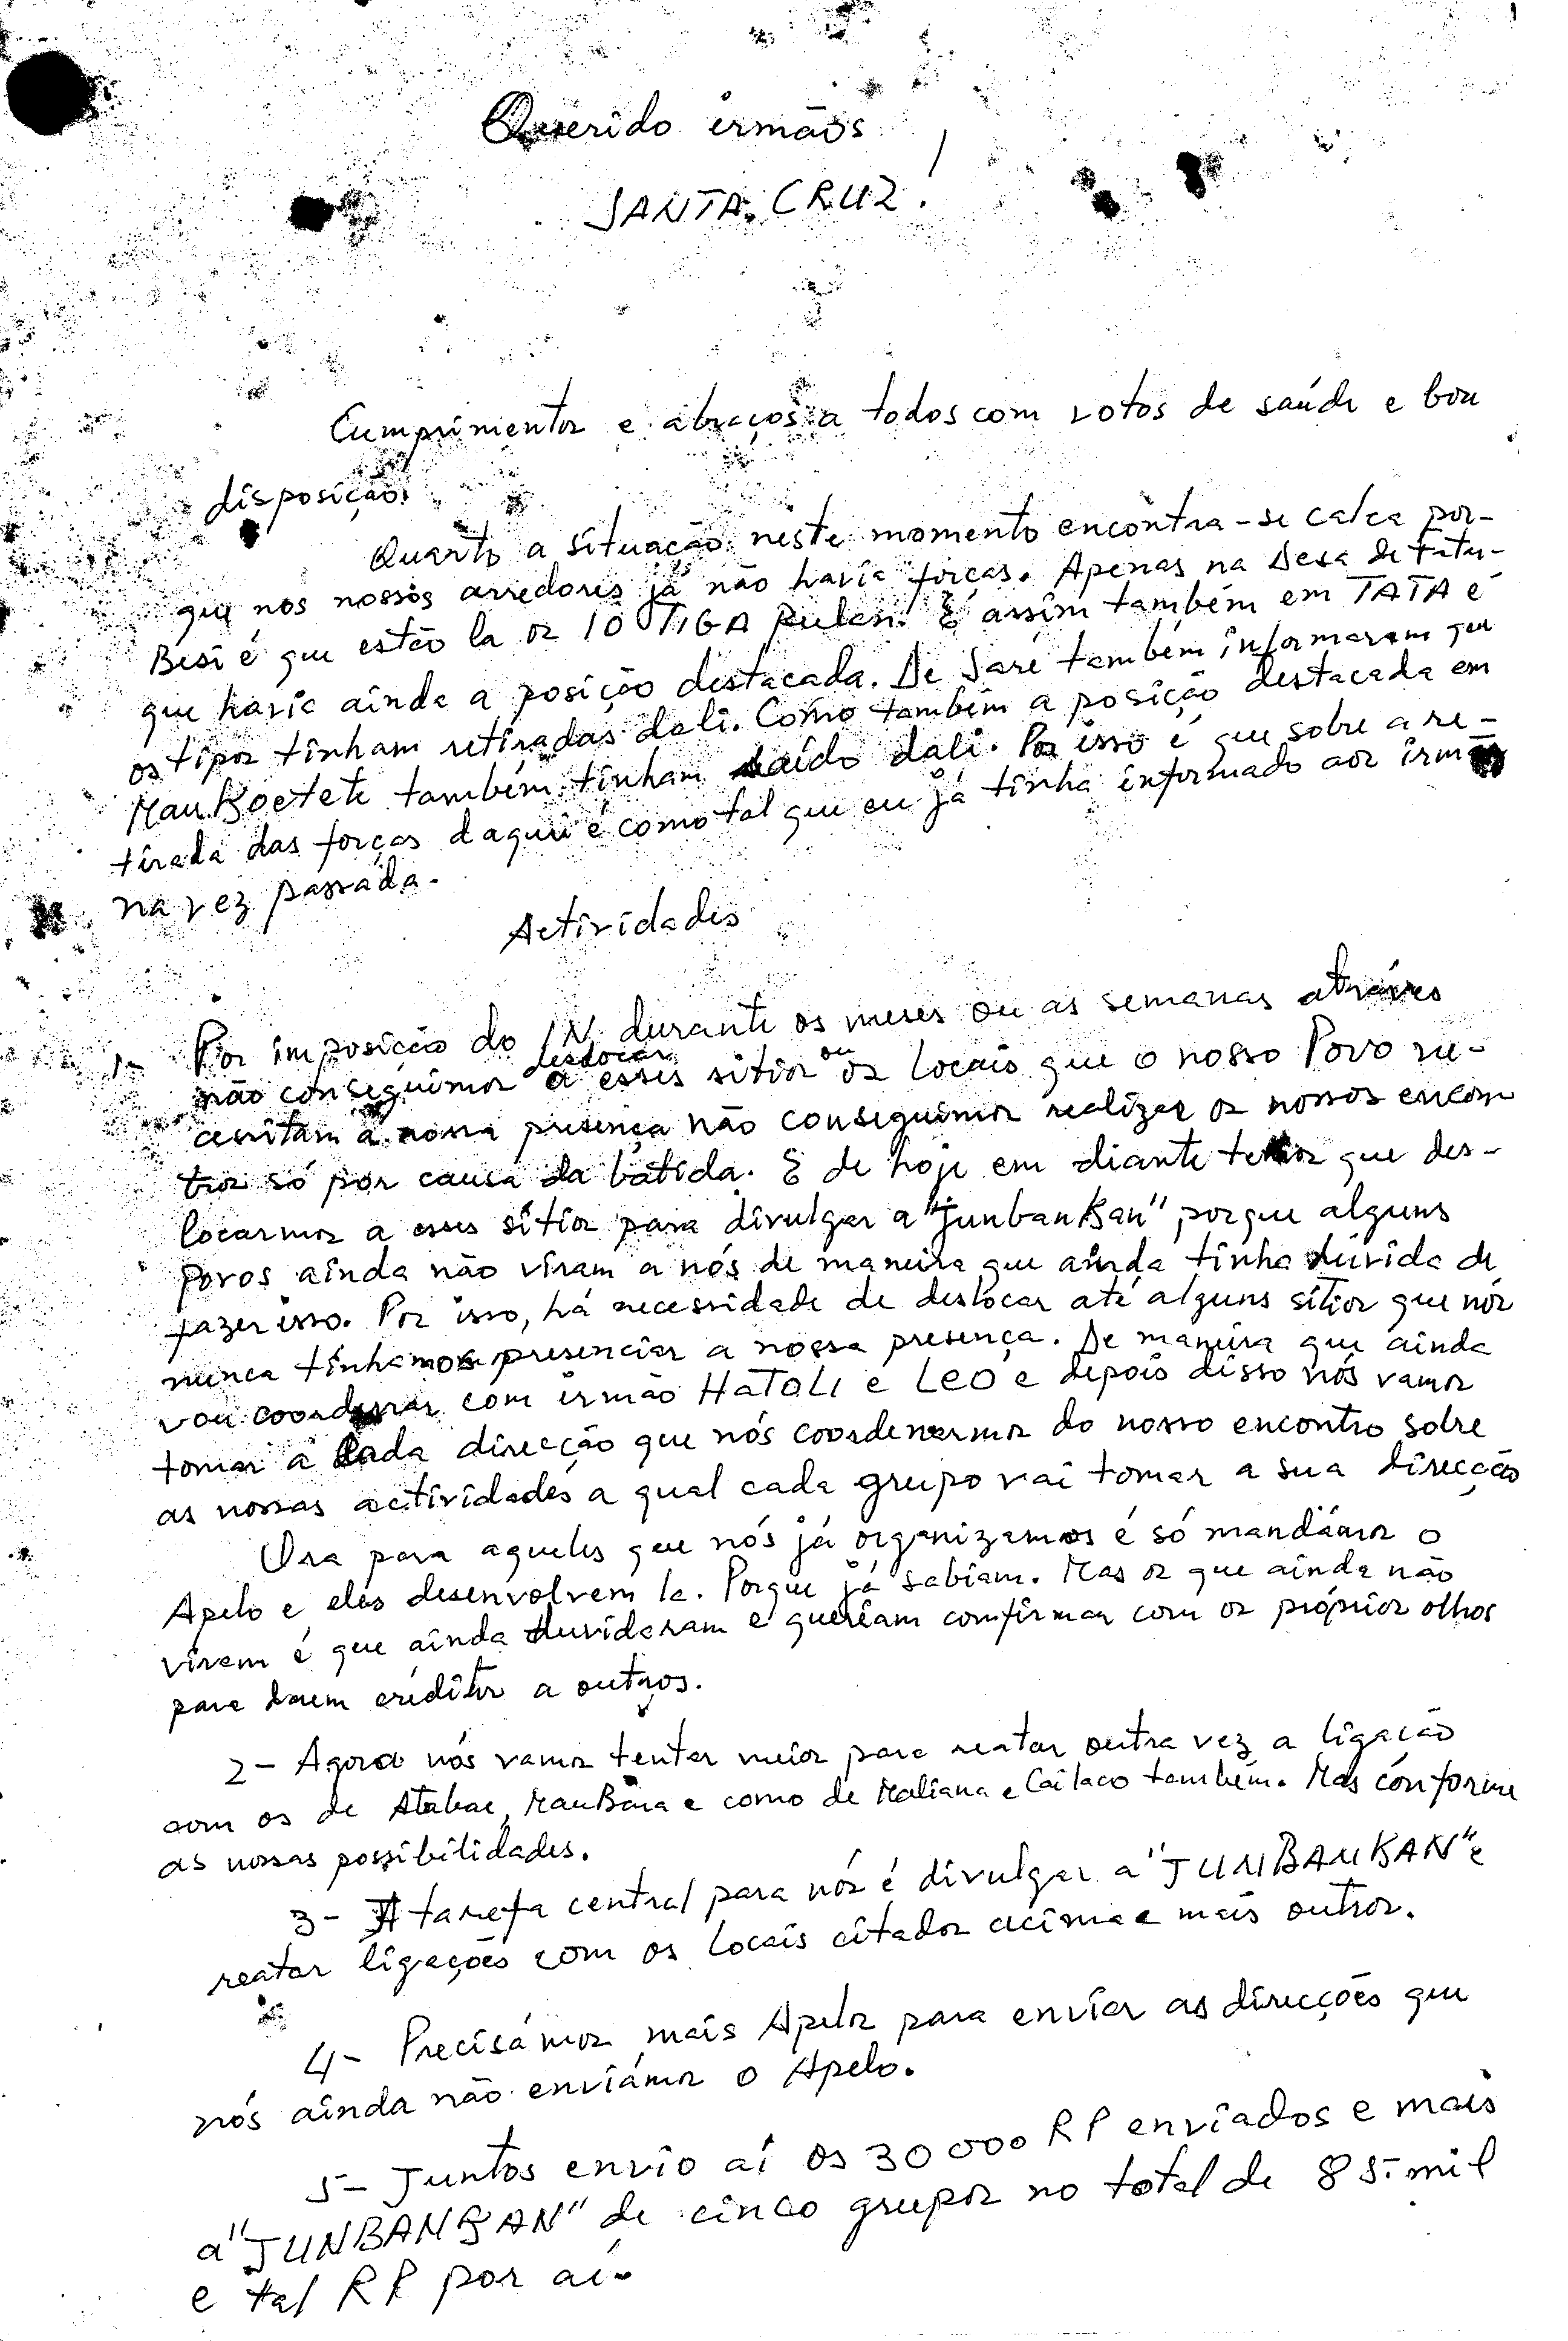 Querido irmãos
SANTA CRUZ!
Cumprimentos e abraços a todos com votos de saúde e boa
disposição.
Quanto a situação neste momento encontra-se calca por-
que nos nossos arredores já não havia forças. Apenas na Desa de Fatu-
Besi é que estão la os 10 TIGA Puluh. E assim também em TATA é
que havia ainda a posição destacada. De Saré também informaram que
os tipos tinham retiradas dali. Como também a posição destacada em
MauBoetete também tinham saído dali. Por isso é que sobre a re-
tirada das forças daqui é como tal que eu já tinha informado aos irmãos
na vez passada.
Actividades
1- Por imposição do IN durante os meses ou as semanas atráves
não conseguimos deslocar a esses sitios ou os locais que o nosso Povo ne-
cessitam a nossa presença não conseguimos realizar os nossos encon
tros só por causa da batida. E de hoje em diante temos que des-
locarmos a esses sítios para divulgar a "JunbanKan" porque alguns
povos ainda não viram a nós de maneira que ainda tinha dúvida de
fazer isso. Por isso, há necessidade de deslocar até alguns sítios que nós
nunca tínhamos presenciar a nossa presença. De maneira que ainda
vou coordenar com irmão HATOLI e LEO e depois disso nós vamos
tomar a cada direcção que nós coordenarmos do nosso encontro sobre
as nossas actividades a qual cada grupo vai tomar a sua direcção
Ora para aqueles que nós já organizamos é só mandámos o
Apelo e eles desenvolvem la. Porque já sabiam. Mas os que ainda não
viram é que ainda duvidaram e queriam confirmar com os próprios olhos
para darem créditos a outros.
2- Agora nós vamos tentar meios para reatar outra vez a ligação
com os de Atabae, MauBara e como de Maliana e Cailaco também. Mas conforme
as nossas possibilidades.
3- A tarefa central para nós é divulgar a "JUNBANKAN" e
reatar ligações com os locais citados acima e mais outros.
4- Precisámos mais Apelos para enviar as direcções que
nós ainda não enviámos o Apelo.
5- Juntos envio aí os 30000 RP enviados e mais
a "JUNBANKAN" de cinco grupos no total de 85 mil
e tal RP por aí.